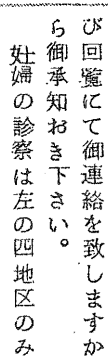 び回覧にて御連絡を致しますか
ら御承知おき下さい。
妊婦の診察は左の四地区のみ